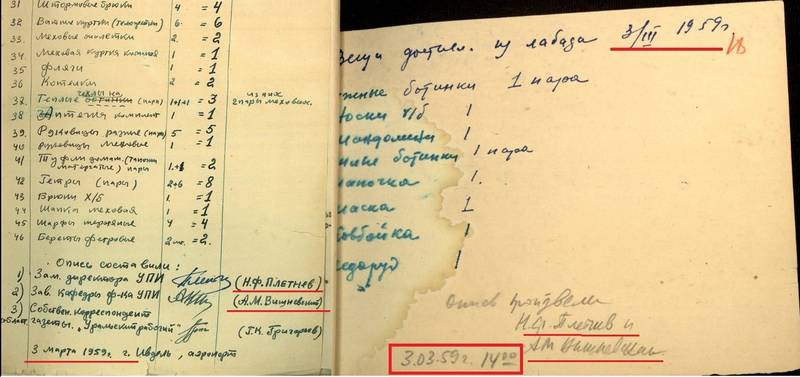 31 Штормовые брюки 4 = 4
32 Ватные куртки (телогрейки) 6. = 6
33. Меховые 2. = 2
34. Меховая куртка 1 = 1
35 Фляги 1 = 1
36 Котелки 2 = 2
чехлы на
37. Теплые ботинки (пара) 1+1+1 = 3 из них 2 пары меховых.
38 Аптечка комплект 1 = 1
39. Рукавицы разные (пара) 5 = 5
40 Рукавицы меховые 1 = 1
41 Туфли домаш. (тапочки матерчатые) пары 1.+1 = 2
42 Гетры (пары) 2+6 = 8
43 Брюки Х/Б 1. = 1
44 Шапка меховая 1 = 1
45 Шарфы шерстяные 4 = 4
46 Береты фетровые 2 = 2.
Опись составили:
1) Зам. директора УПИ (Н.Ф. Плетнев)
2) Зав. кафедры ф-ка УПИ (А.М. Вишневский)
3) Собствен. корреспондент
област. газеты. „Уральский рабочий" (Г.К. Григорьев)
3 марта 1959 г. г. Ивдель, аэропорт
Вещи достав. из лабаза 3/III 1959г.
ыжные ботинки 1 пара
оски х/б 1
андолина 1
ботинки 1 пара
апочка 1.
аска 1
овбойка 1
едоруб 1
Опись произвели
Н.Ф. Плетнев и
А.М. Вишневский.
3.03.59г. 14 00